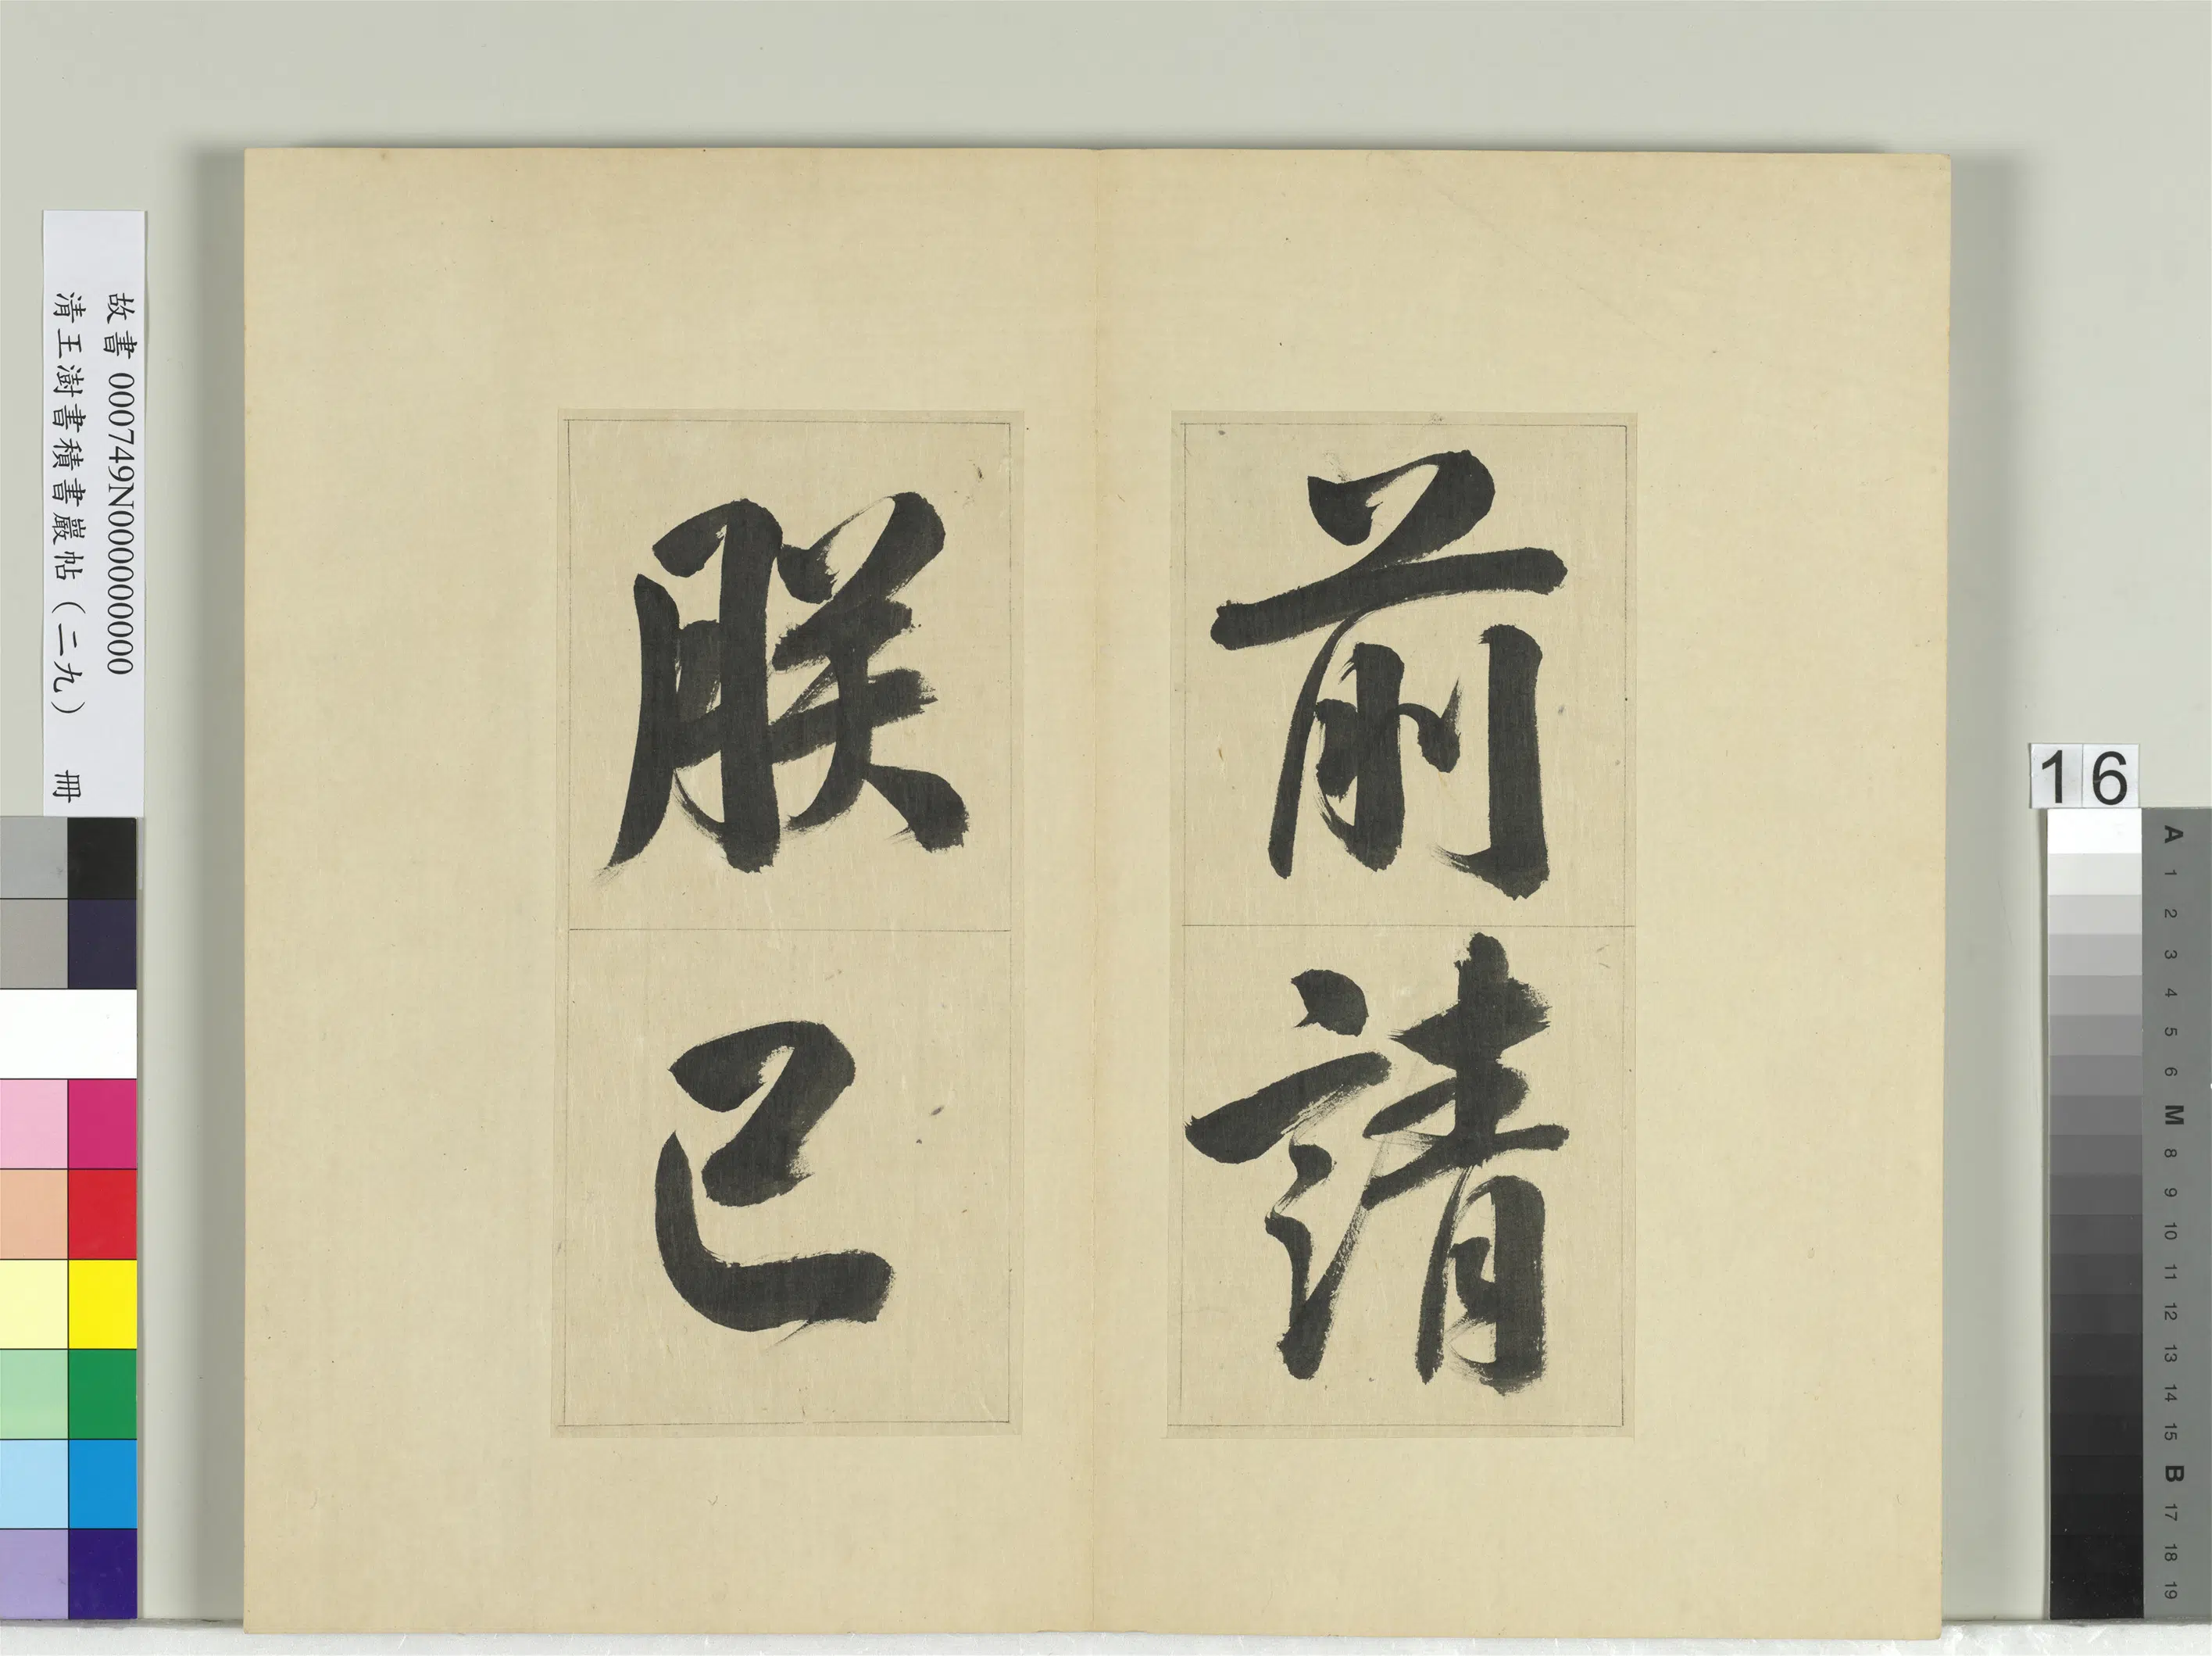 前請
朕已
故書 000749N000000000
清王澍書積書巖帖（二九） 冊
16
A
1
2
3
4
5
6
M
8
9
10
11
12
13
14
15
B
17
18
19